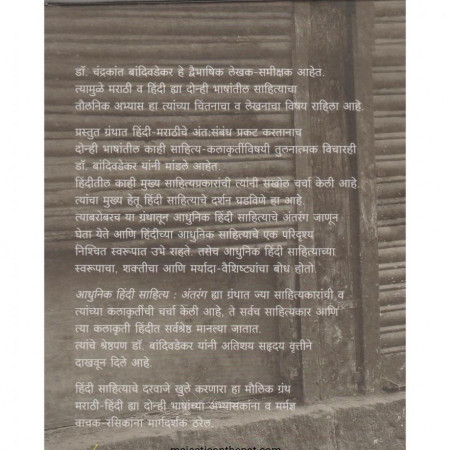 डॉ. चंद्रकांत बांदिवडेकर हे द्वैभाषिक लेखक-समीक्षक आहेत.
त्यामुळे मराठी व हिंदी ह्या दोन्ही भाषांतील साहित्याचा
तौलनिक अभ्यास हा त्यांच्या चिंतनाचा व लेखनाचा विषय राहिला आहे.
प्रस्तुत ग्रंथात हिंदी-मराठीचे अंत:संबंध प्रकट करतानाच
दोन्ही भाषांतील काही साहित्य-कलाकृतींविषयी तुलनात्मक विचारही
डॉ. बांदिवडेकर यांनी मांडले आहेत.
हिंदीतील काही मुख्य साहित्यप्रकारांची त्यांनी सखोल चर्चा केली आहे.
त्यांचा मुख्य हेतू हिंदी साहित्याचे दर्शन घडविणे हा आहे.
त्याबरोबरच या ग्रंथातून आधुनिक हिंदी साहित्याचे अंतरंग जाणून
घेता येते आणि हिंदीच्या आधुनिक साहित्याचे एक परिदृश्य
निश्चित स्वरूपात उभे राहते. तसेच आधुनिक हिंदी साहित्याच्या
स्वरूपाचा, शक्तीचा आणि मर्यादा-वैशिष्ट्यांचा बोध होतो.
आधुनिक हिंदी साहित्य : अंतरंग ह्या ग्रंथात ज्या साहित्यकारांची व
त्यांच्या कलाकृतींची चर्चा केली आहे, ते सर्वच साहित्यकार आणि
त्या कलाकृती हिंदीत सर्वश्रेष्ठ मानल्या जातात.
त्यांचे श्रेष्ठपण डॉ. बांदिवडेकर यांनी अतिशय सहृदय वृत्तीने
दाखवून दिले आहे.
हिंदी साहित्याचे दरवाजे खुले करणारा हा मौलिक ग्रंथ
मराठी-हिंदी ह्या दोन्ही भाषांच्या अभ्यासकांना व मर्मज्ञ
वाचक-रसिकांना मार्गदर्शक ठरेल.